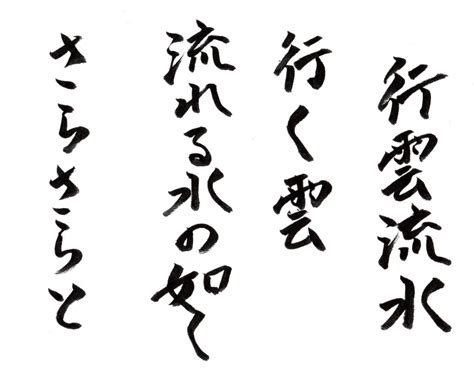 行雲流水
行く雲
流れる水の如く
さらさらと